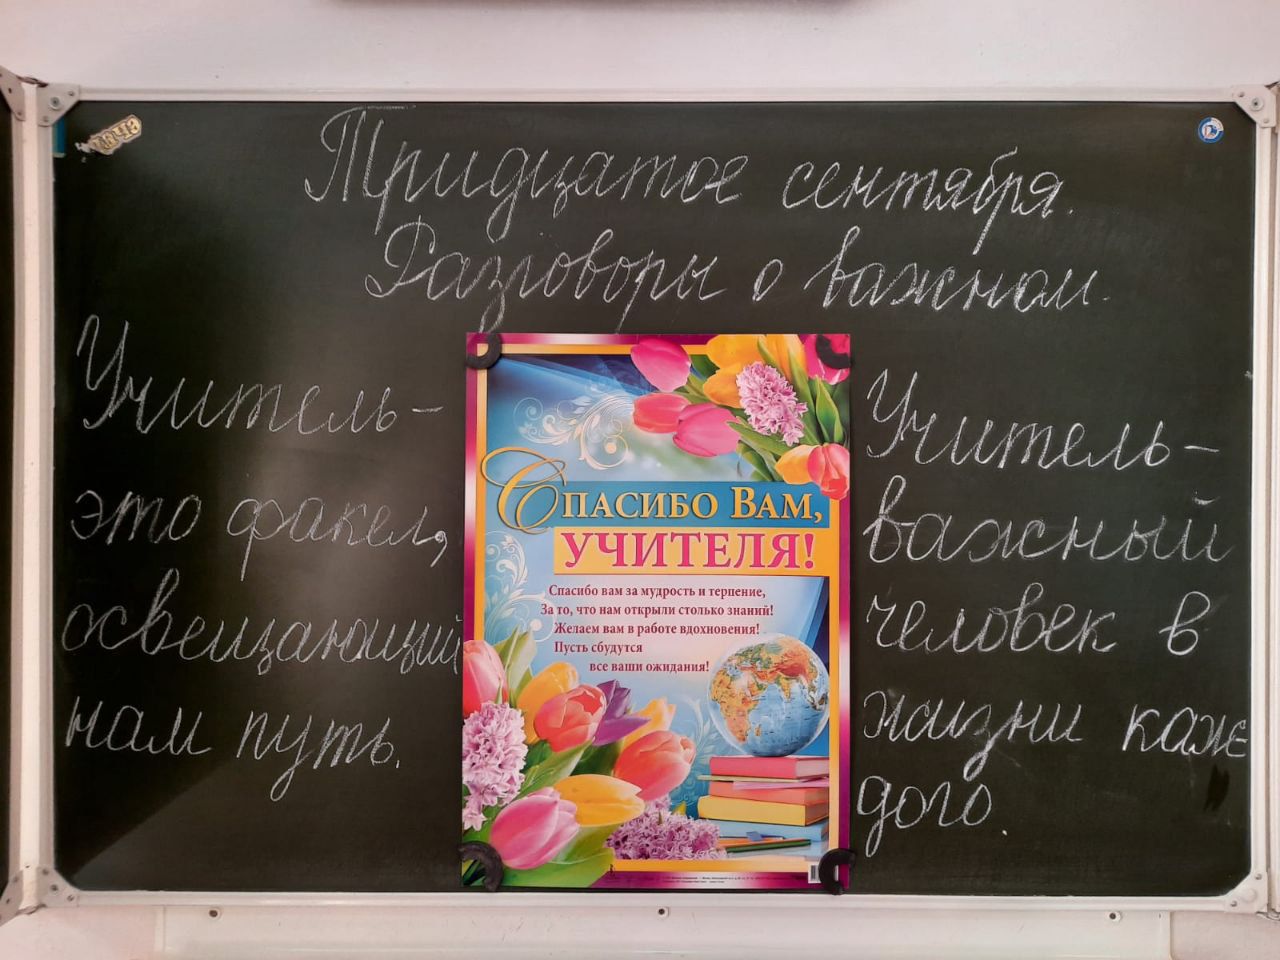 Тридцатое сентября.
Разговоры о важном.
Учитель-
это факел,
освещающий
нам путь.
Спасибо Вам,
УЧИТЕЛЯ!
Спасибо вам за мудрость и терпение,
За то, что нам открыли столько знаний!
Желаем вам в работе вдохновения!
Пусть сбудутся
все ваши ожидания!
Учитель-
важный
человек в
жизни каж
дого.